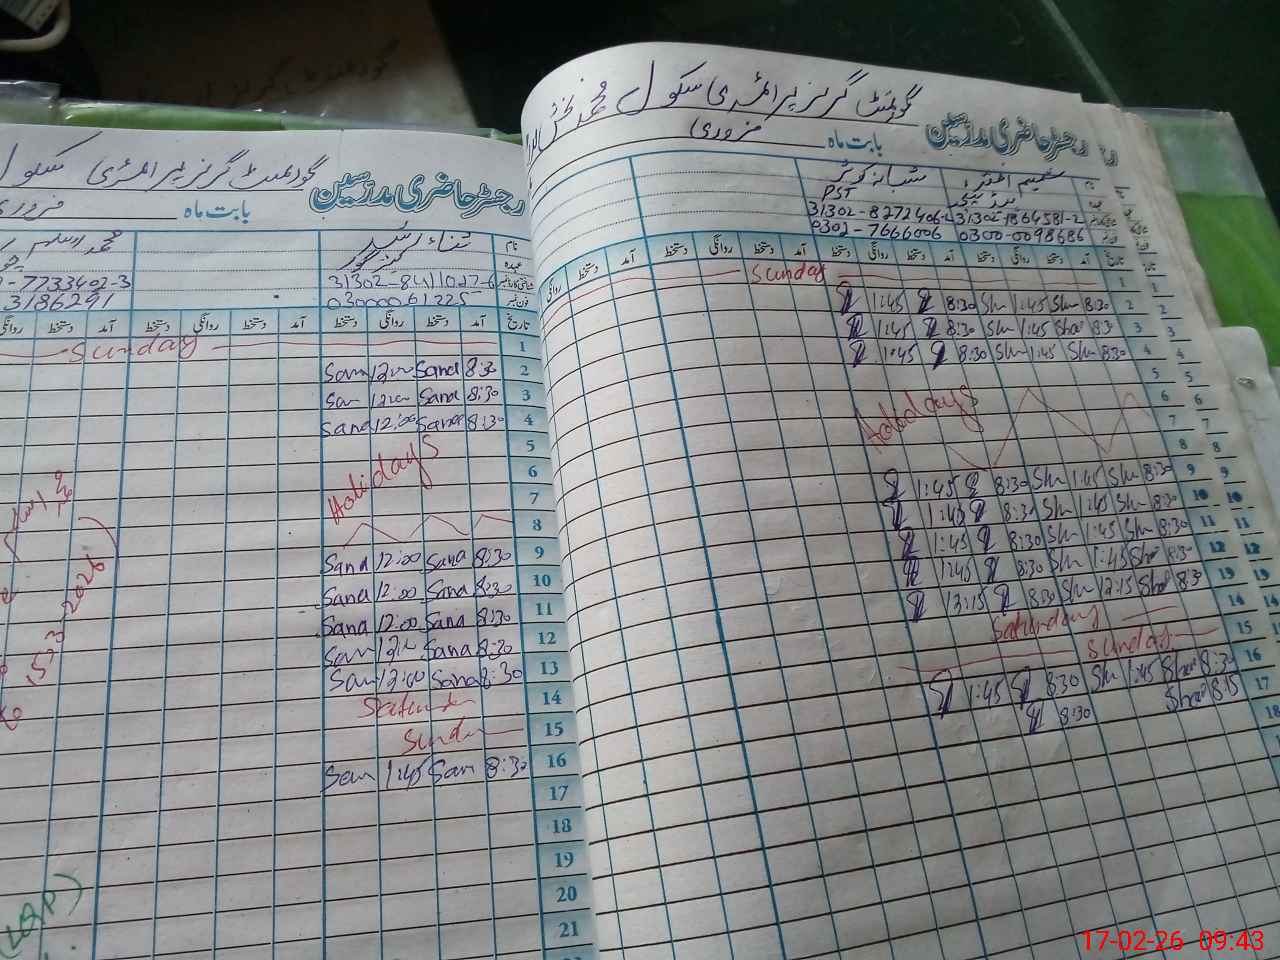 گورنمنٹ گرلز پرائمری سکول محمد بخش
رجسٹر حاضری مدرسین
بابت ماہ فروری
شمیم اختر
شبانہ کوثر
PST
31302-8272406-
31302-1864581-2
0302-7666006
0300-0098686
تاریخ آمد دستخط روانگی دستخط آمد دستخط روانگی دستخط آمد دستخط روانگی دستخط آمد دستخط روانگی
1 Sunday
2 8:30 Sh 1:45 Sh 8:30 1:45
3 8:3 Sha 1:45 Sh 8:30 1:45
4 8:30 Sh 1:45 Sh 8:30 1:45
5
6 Holidays
7
8
9 8:30 Sh 1:45 Sh 8:30 1:45
10 8:30 Sh 1:45 Sh 8:30 1:45
11 8:30 Sh 1:45 Sh 8:30 1:45
12 8:30 Sha 1:45 Sh 8:30 1:45
13 8:3 Sha 12:15 Sh 8:30 12:15
14 Saturday
15 Sunday
16 8:30 Sha 1:45 Sh 8:30 1:45
17 8:15 Sha 8:30
18
گورنمنٹ گرلز پرائمری سکول
رجسٹر حاضری مدرسین
بابت ماہ فروری
نام ثناء رشید محمد اسلم
عہدہ
شناختی کارڈ نمبر 31302-8411027-6 -7733402-3
فون نمبر 03000061225 3186291
تاریخ آمد دستخط روانگی دستخط آمد دستخط روانگی دستخط آمد دستخط روانگی
1 Sunday
2 8:30 Sana 12:00 San
3 8:30 Sana 12:00 San
4 8:30 Sana 12:00 Sana
5
6 Holidays
7
8
9 8:30 Sana 12:00 Sana
10 8:30 Sana 12:00 Sana
11 8:30 Sana 12:00 Sana
12 8:30 Sana 12:00 San
13 8:30 Sana 12:00 San
14 Saturday
15 Sunday
16 8:30 San 1:45 San
17
18
19
20
21
17-02-26 09:43